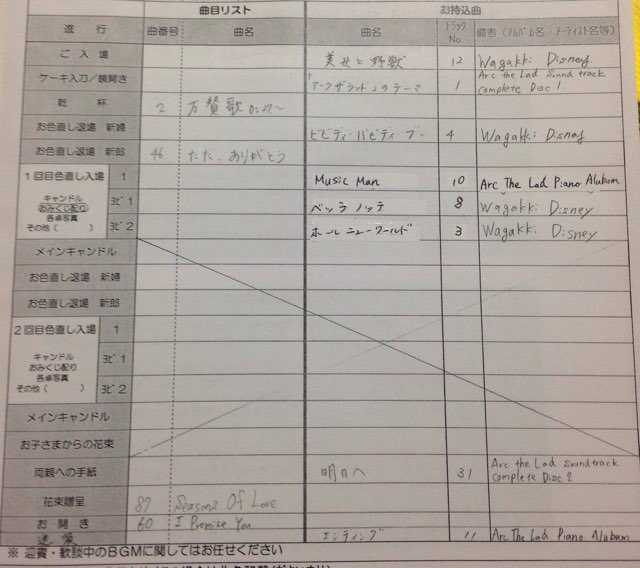 曲目リスト お持込曲
進行 曲番号 曲名 曲名 トラックNo. 備考(アルバム名・アーティスト名等)
ご入場 美女と野獣 12 Wagakki Disney
ケーキ入刀/鏡開き 「アークザラッド」のテーマ 1 Arc the Lad Sound track
complete Disc 1
乾杯 2 万賛歌 0:27～
お色直し退場 新婦 ビビディ・バビディ・ブー 4 Wagakki Disney
お色直し退場 新郎 46 ただ、ありがとう
1回目色直し入場 1 Music Man 10 Arc The Lad Piano Alubum
キャンドル
おみくじ配り
各卓写真
その他( )
ヨビ1 ベッラ ノッテ 8 Wagakki Disney
ヨビ2 ホール ニュー ワールド 3 Wagakki Disney
メインキャンドル
お色直し退場 新婦
お色直し退場 新郎
2回目色直し入場 1
キャンドル
おみくじ配り
各卓写真
その他( )
ヨビ1
ヨビ2
メインキャンドル
お子さまからの花束
両親への手紙 明日へ 31 Arc the Lad Soundtrack
complete Disc 2
花束贈呈 87 Seasons Of Love
お開き 60 I Promise You
エンディング 11 Arc The Lad Piano Alubum
※ 迎賓・歓談中のBGMに関してはお任せください